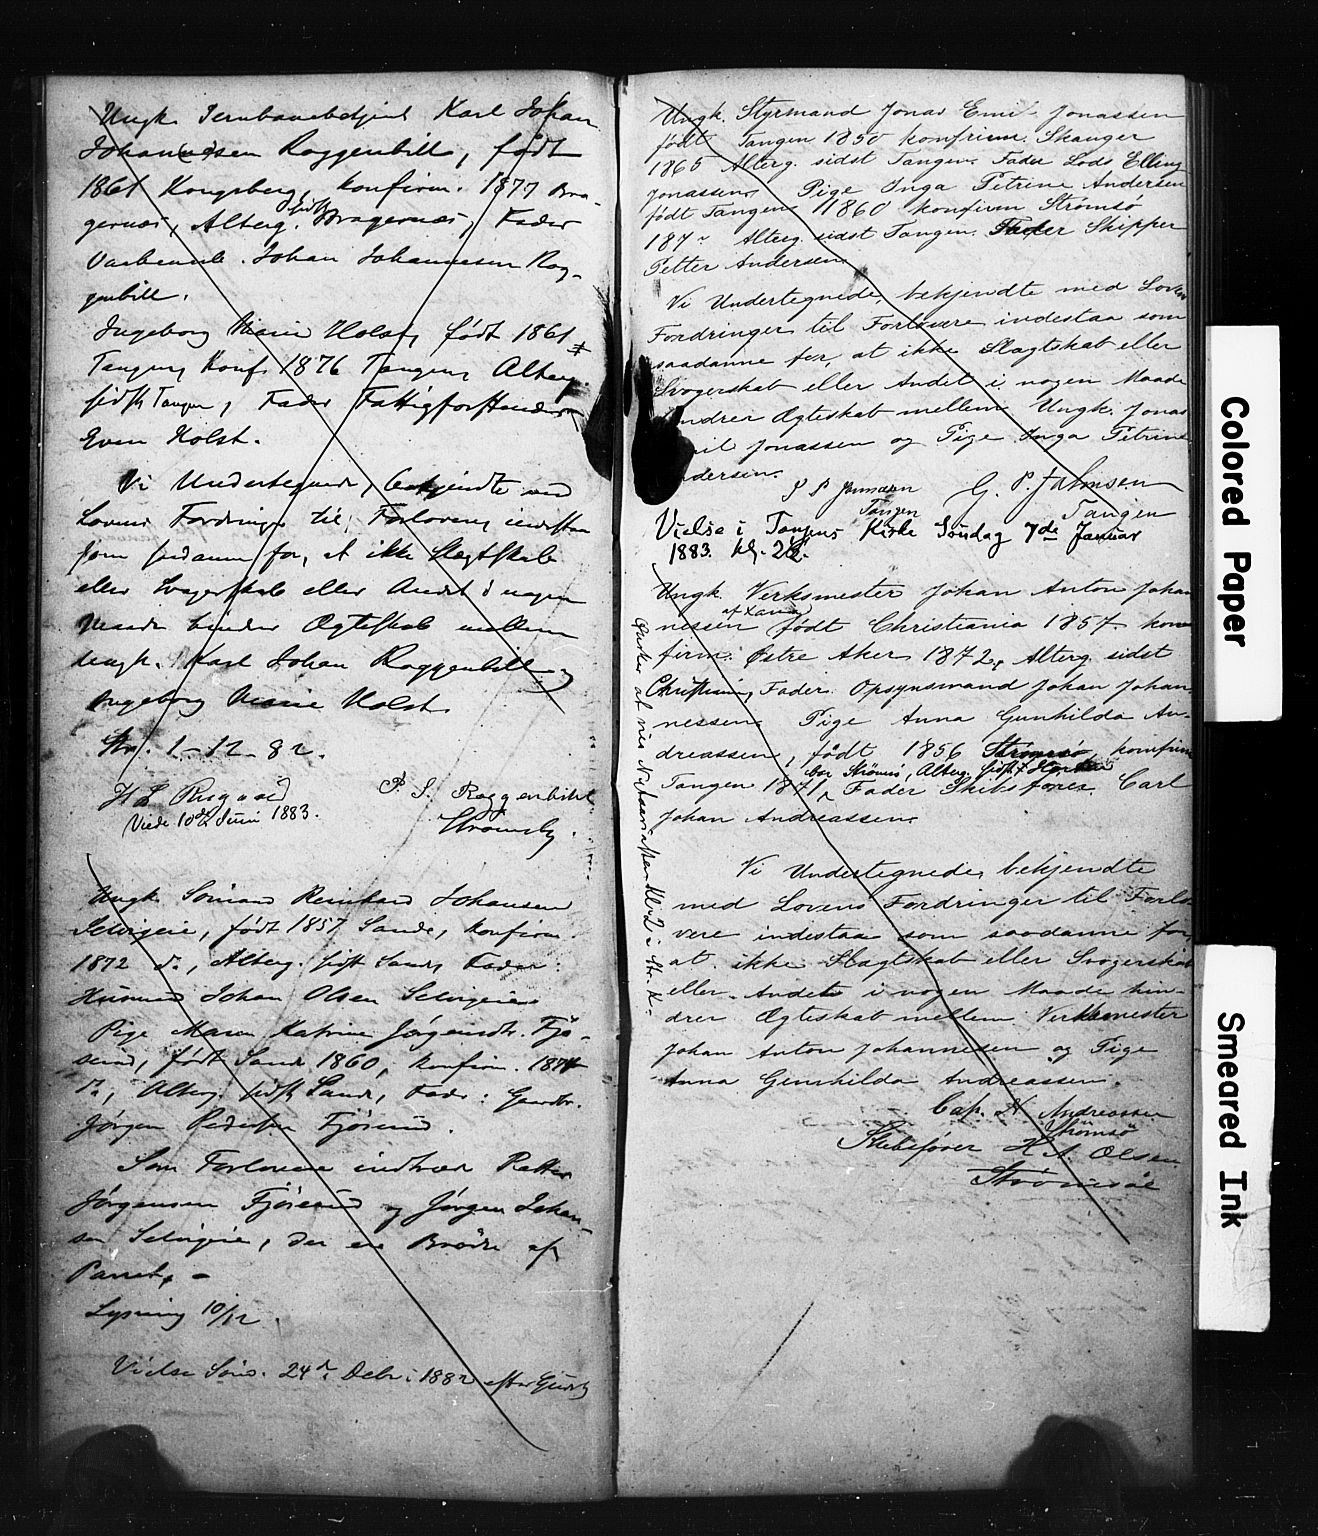 Ungk. Jernbanebetjent Karl Johan
Johannesen Roggenbill, født
1861 Kongsberg, konfirm. 1877 Bra-
gernæs, Alterg. sidst Bragernæs, Fader
Johan Johannesen Rog-
genbill.
Ingeborg Marie Holst, født 1861
Tangen, Konf. 1876 Tangen, Alterg
sidst Tangen, Fader Fattigforstander
Even Holst.
Vi Undertegnede, bekjendte med
Lovens Fordringer til Forlovere, indestaa
som saadanne for, at ikke Slægtskab
eller Svogerskab eller Andet i nogen
Maade hindrer Ægteskab mellem
Ungk. Karl Johan Roggenbill og
Ingeborg Marie Holst.
Str. 1-12-82.
P. S. Roggenbill
Viede 10de Juni 1883.
Ungk. Sømand Reinhard Johansen
Selvigeie, født 1857 Sande, konfirm.
1872 do., Alterg. sidst Sande, Fader:
Husmand Johan Olsen Selvigeie
Pige Maren Katrine Jørgensdtr. Fjø-
serud, født Sande 1860, konfirm. 1874
do., Alterg. sidst Sande, Fader: Gaardbr.
Jørgen Pedersen Fjøserud.
Som Forlovere indtræder Petter
Jørgensen Fjøserud og Jørgen Johan-
sen Selvigeie, der ere Brødre af
Parret. -
Lysning 10/12.
Vielse Sønd. 24de Decbr. 1882 efter Gudst
Ungk. Styrmand Jonas Emil Jonassen
født Tangen 1850 konfirm. Skanger
1865 Alterg. sidst Tangen. Fader Lods Elling
Jonassen. Pige Inga Petrine Andersen
født Tangen 1860 konfirm Strømsø
187 Alterg. sidst Tangen. Fader Skipper
Petter Andersen.
Vi Undertegnede, bekjendte med Lovens
Fordringer til Forlovere indestaa som
saadanne for, at ikke Slægtskab eller
Svogerskab eller Andet i nogen Maade
hindrer Ægteskab mellem Ungk. Jonas
Emil Jonassen og Pige Inga Petrine
Andersen.
G. P. Johnsen
Tangen
Tangen
Vielse i Tangens Kirke Søndag 7de Januar
1883. kl. 2½.
Ungk. Verksmester Johan Anton Johan
nessen født Christiania 1857 kon
firm. Østre Aker 1872, Alterg. sidst
Christiania, Fader Opsynsmand Johan Johan-
nessen. Pige Anna Gunhilda An-
dreassen, født 1856 Strømsø, konfirm
bor Strømsø, Alterg. sidst
Tangen 1871, Fader Skibsfører Carl
Johan Andreassen
Vi Undertegnede, bekjendte
med Lovens Fordringer til Forlo-
vere indestaa som saadanne for
at ikke Slægtskab eller Svogerskab
eller Andet i nogen Maade hin-
drer Ægteskab mellem Verksmester
Johan Anton Johannesen og Pige
Anna Gunhilda Andreassen.
Cap. H Andreassen
Strømsø
Skibsfører H A. Olsen
Strømsøe
Colored Paper
Smeared Ink